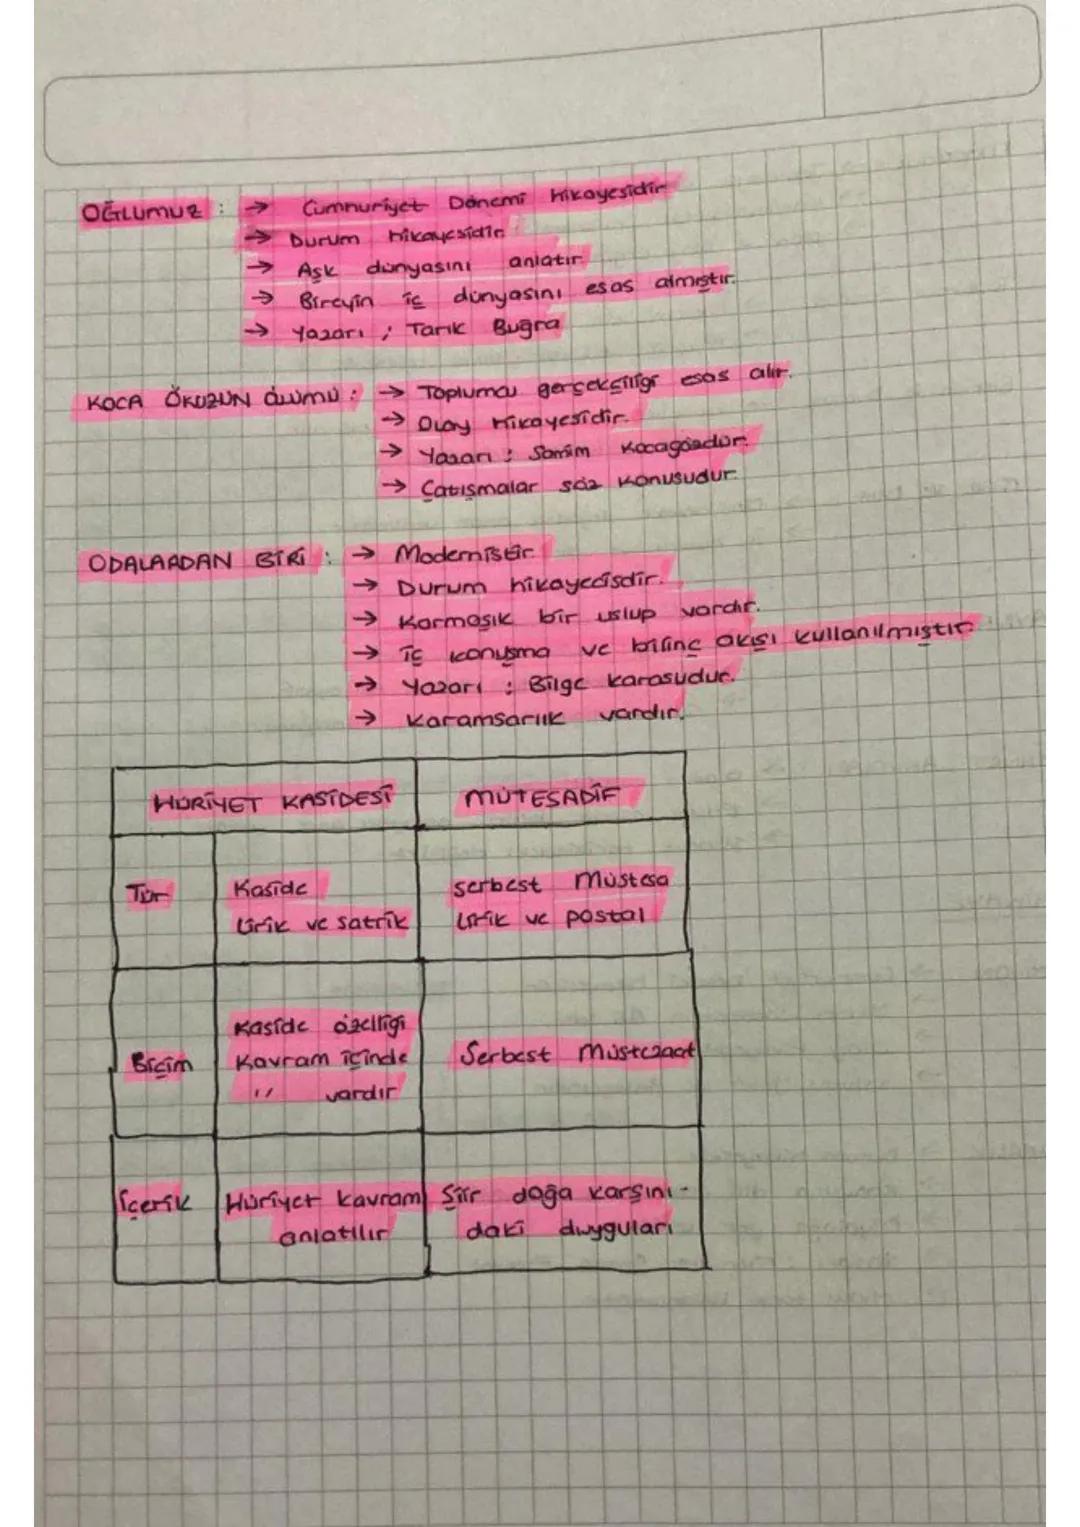 OĞLUMUZ : → Cumhuriyet Dönemi hikayesidir
→ Durum hikayesidir.
→ Aşk dünyasını anlatır.
→ Bireyin iç dünyasını esas almıştır.
→ Yazarı ; Tarık Buğra
KOCA ÖKÜZÜN ÖLÜMÜ : → Toplumcu gerçekçiliği esas alır.
→ Olay Hikayesidir.
→ Yazarı : Samim Kocagözdür.
→ Çatışmalar söz konusudur.
ODALARDAN BİRİ : → Modernisttir
→ Durum hikayecisdir.
→ Karmaşık bir uslup vardır.
→ İç konuşma ve bilinç akışı kullanılmıştır.
→ Yazarı : Bilge karasudur.
→ Karamsarlık vardır.
HÜRİYET KASİDESİ MÜTESADİF
Tür Kaside Serbest Müstesa
Lirik ve satrik Lirik ve postal
Biçim Kaside özelliği Serbest Müstezaat
Kavram içinde
" vardır
İçerik Hüriyet kavram Şiir doğa karşını-
anlatılır daki duyguları